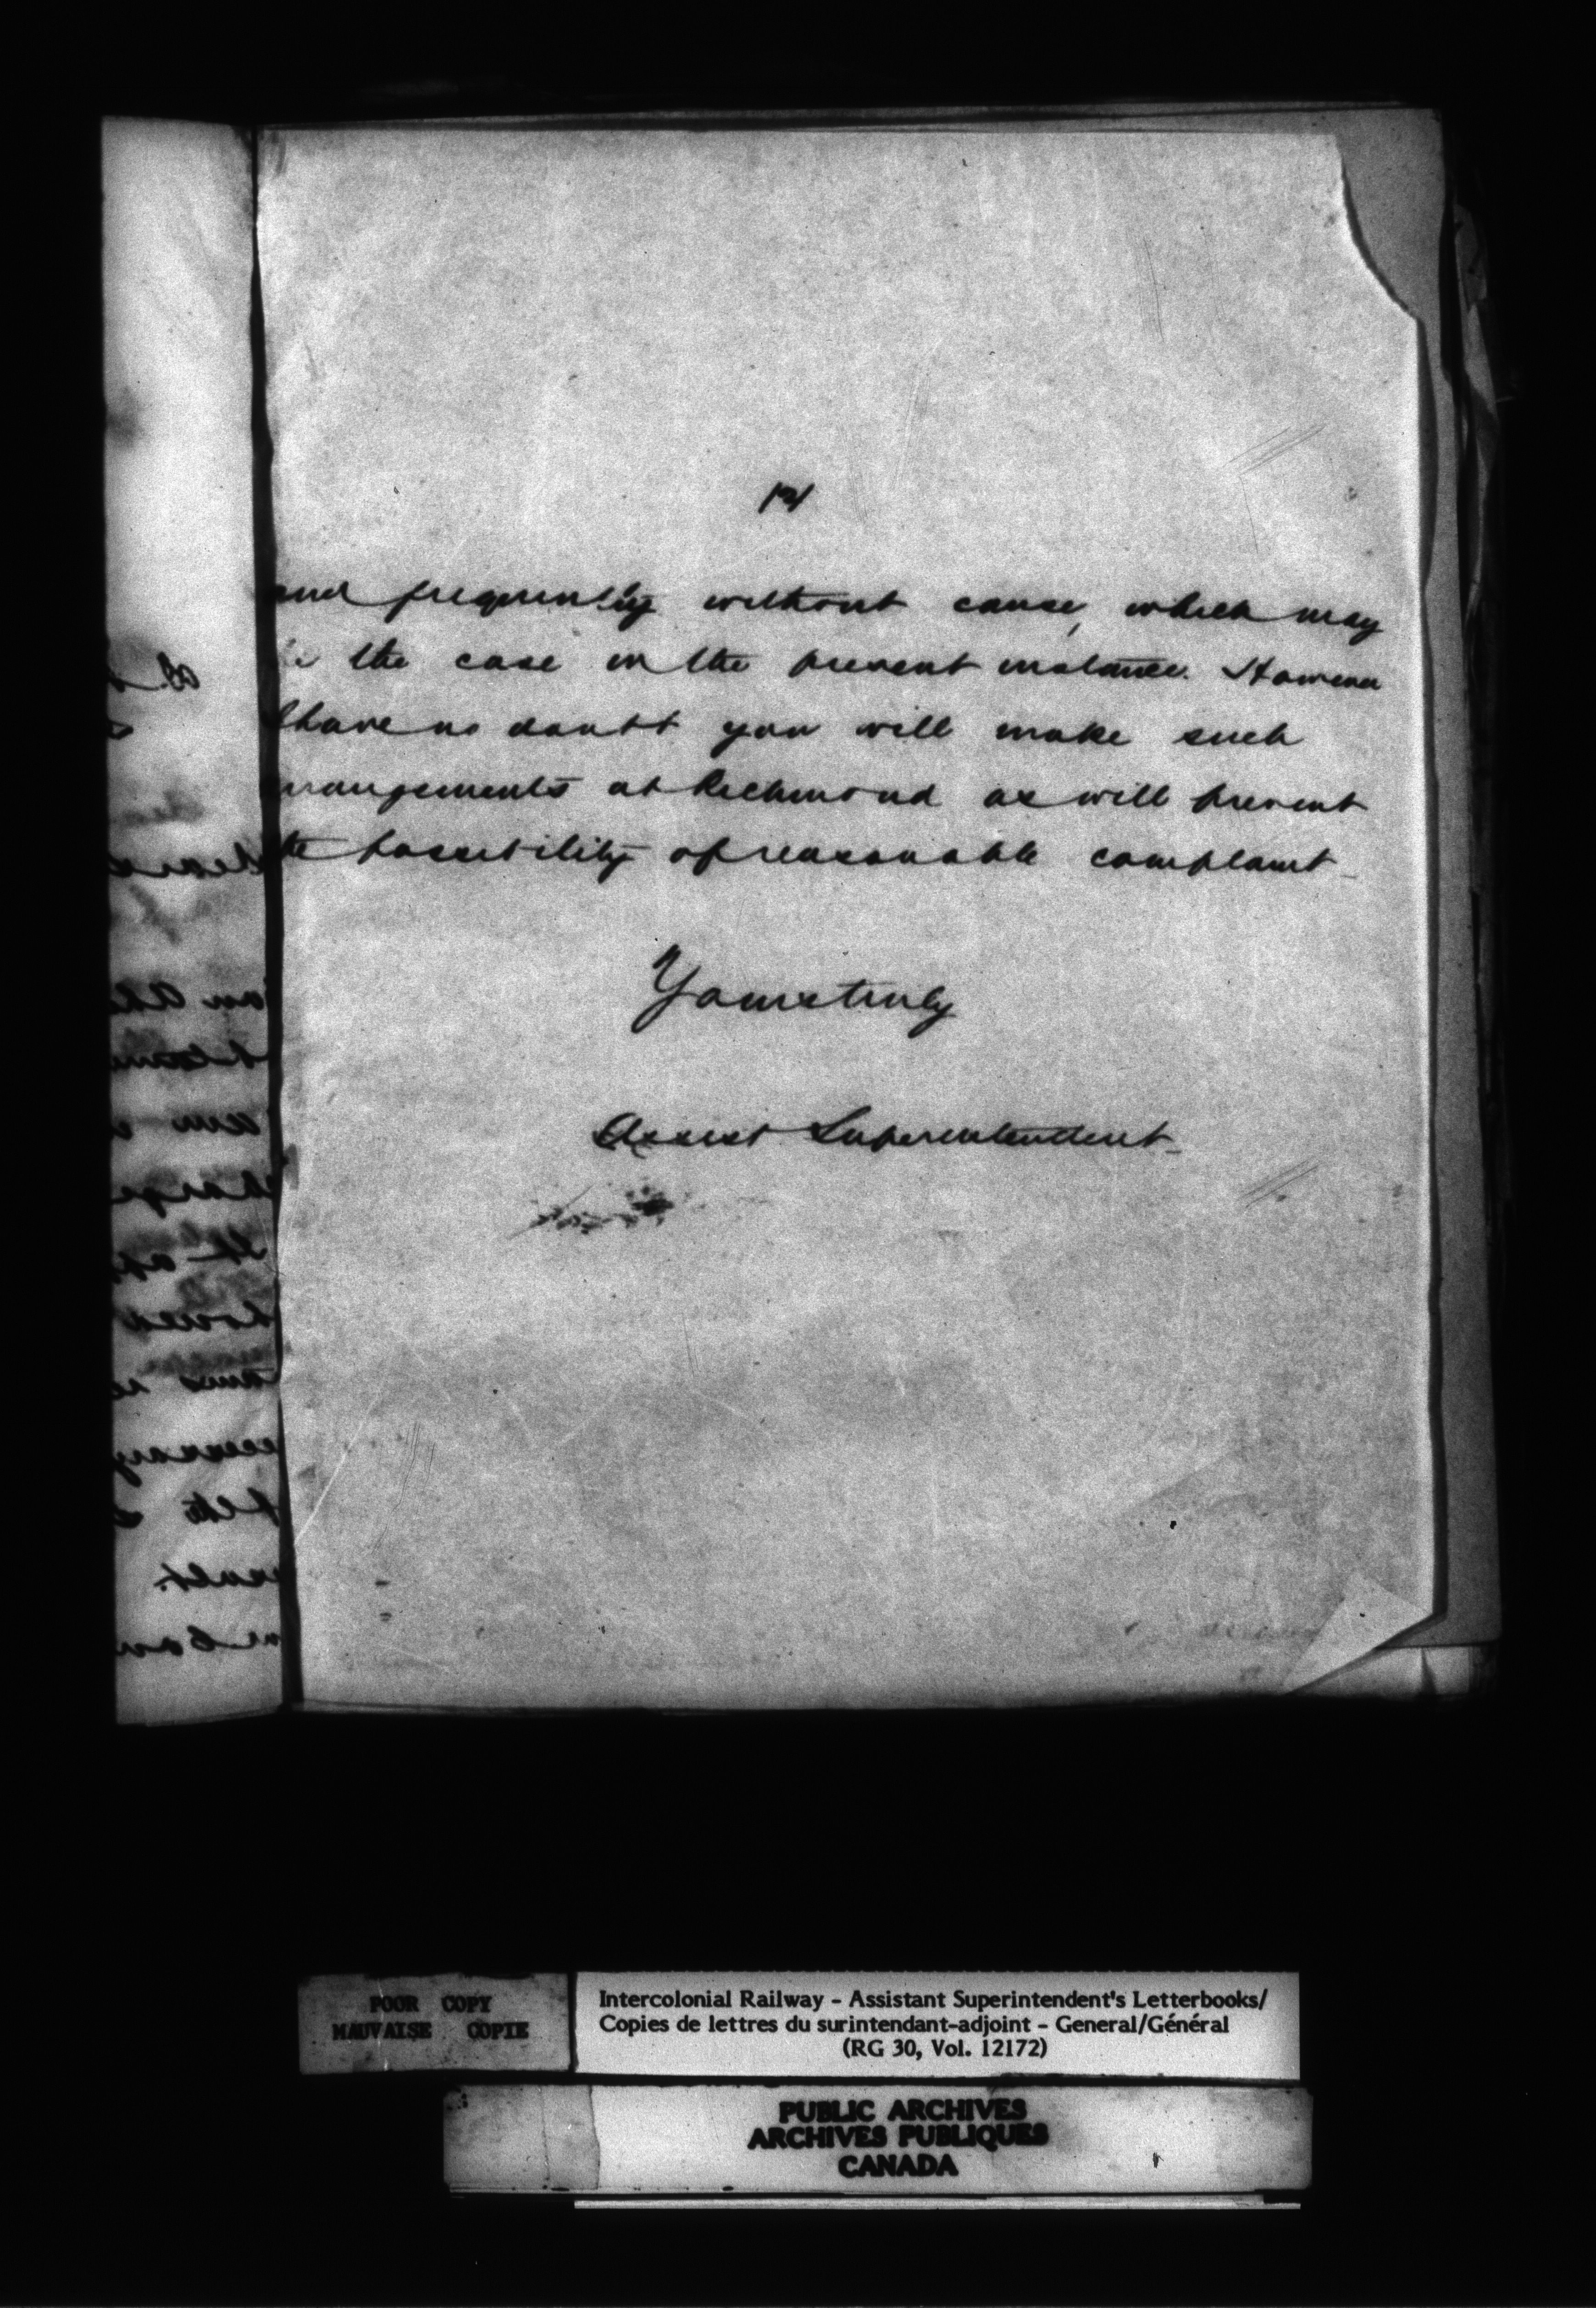 and frequently without cause, which may
be the case in the present instance. However
I have no doubt you will make such
arrangements at Richmond as will prevent
the possibility of reasonable complaint
Yours truly
Assist Superintendent
POOR COPY
MAUVAISE COPIE
Intercolonial Railway - Assistant Superintendent's Letterbooks/
Copies de lettres du surintendant-adjoint - General/Général
(RG 30, Vol. 12172)
PUBLIC ARCHIVES
ARCHIVES PUBLIQUES
CANADA